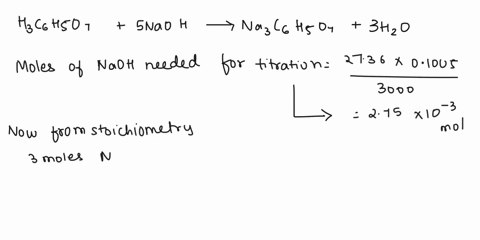 H₃C₆H5O₇ + 5NaOH → Na₃C₆H₅O₇ + 3H₂O
Moles of NaOH needed for titration = 27.36 × 0.1005 / 3000
= 2.75 × 10⁻³ mol
Now from stoichiometry
3 moles N